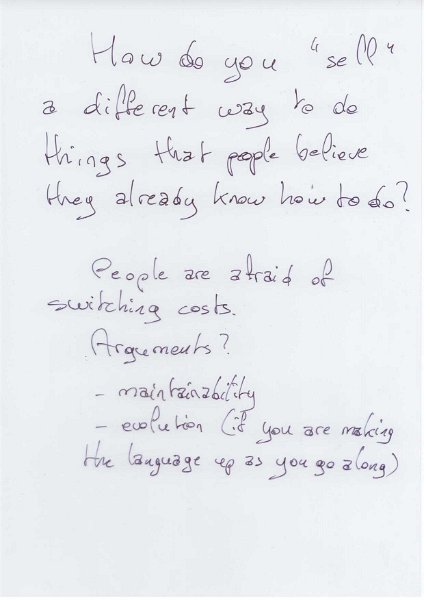 How do you "sell"
a different way to do
things that people believe
they already know how to do?
People are afraid of
switching costs.
Arguments?
- maintainability
- evolution (if you are making
the language up as you go along)